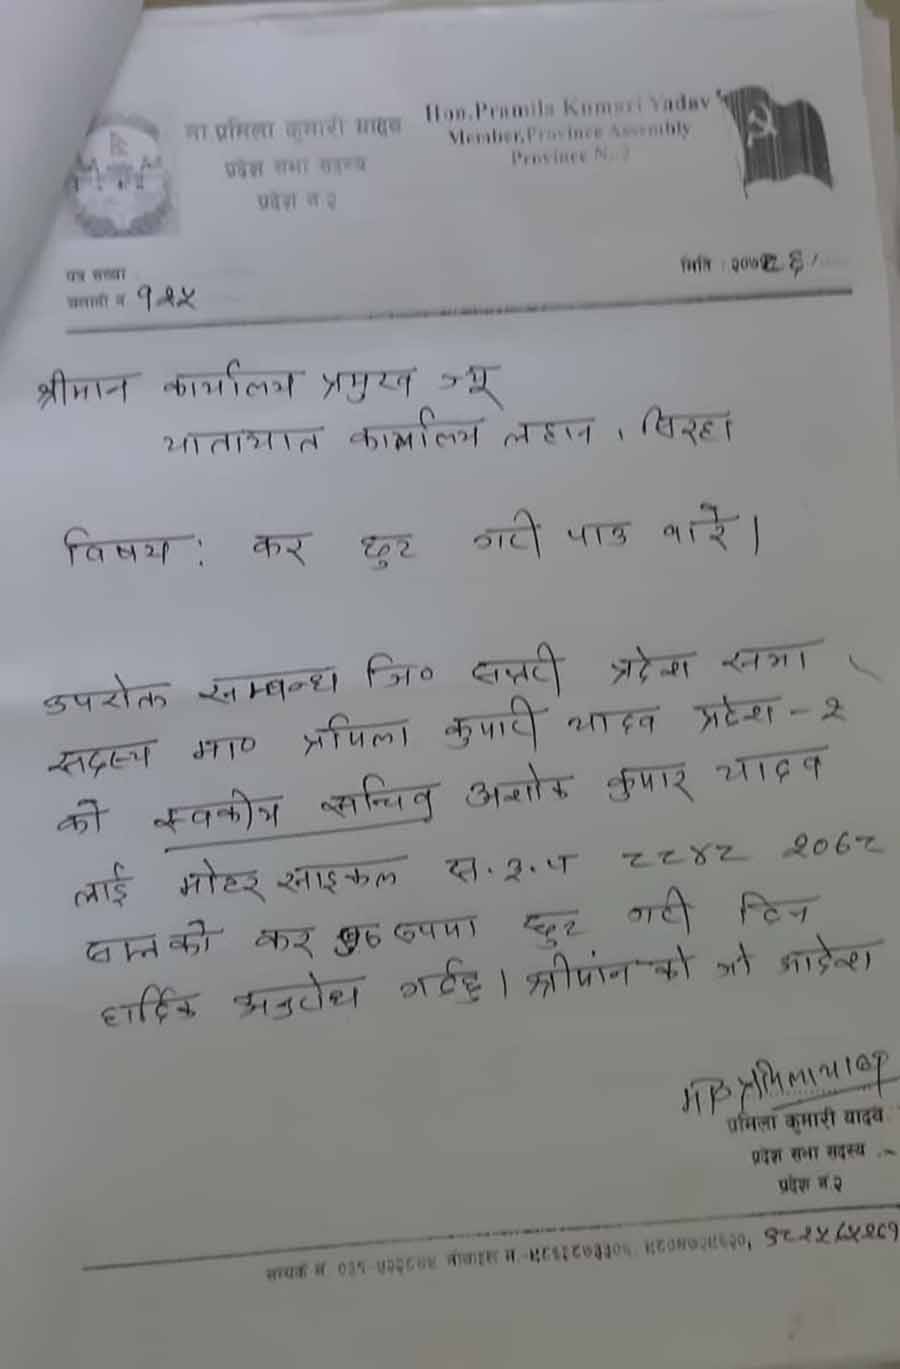 मा प्रमिला कुमारी यादव
प्रदेश सभा सदस्य
प्रदेश न २
Hon.Pramila Kumari Yadav
Member,Province Assembly
Province N. 2
पत्र संख्या
चलानी न १२५
मिति : २०७
श्रीमान कार्यालय प्रमुख ज्यू
यातायात कार्यालय लहान, सिरहा
विषय: कर छुट गरी पाउ बारे।
उपरोक्त सम्बन्ध जि० सप्तरी प्रदेश सभा
सदस्य मा० प्रमिला कुमारी यादव प्रदेश - २
को स्वकीय सचिव अशोक कुमार यादव
लाई मोटर साइकल स. २. प ८८४८ २०७८
को कर रुपया छुट गरी दिन
हार्दिक अनुरोध गर्दछु। श्रीमान को जो आदेश
प्रमिला यादव
प्रमिला कुमारी यादव
प्रदेश सभा सदस्य
प्रदेश न.२
सम्पर्क न